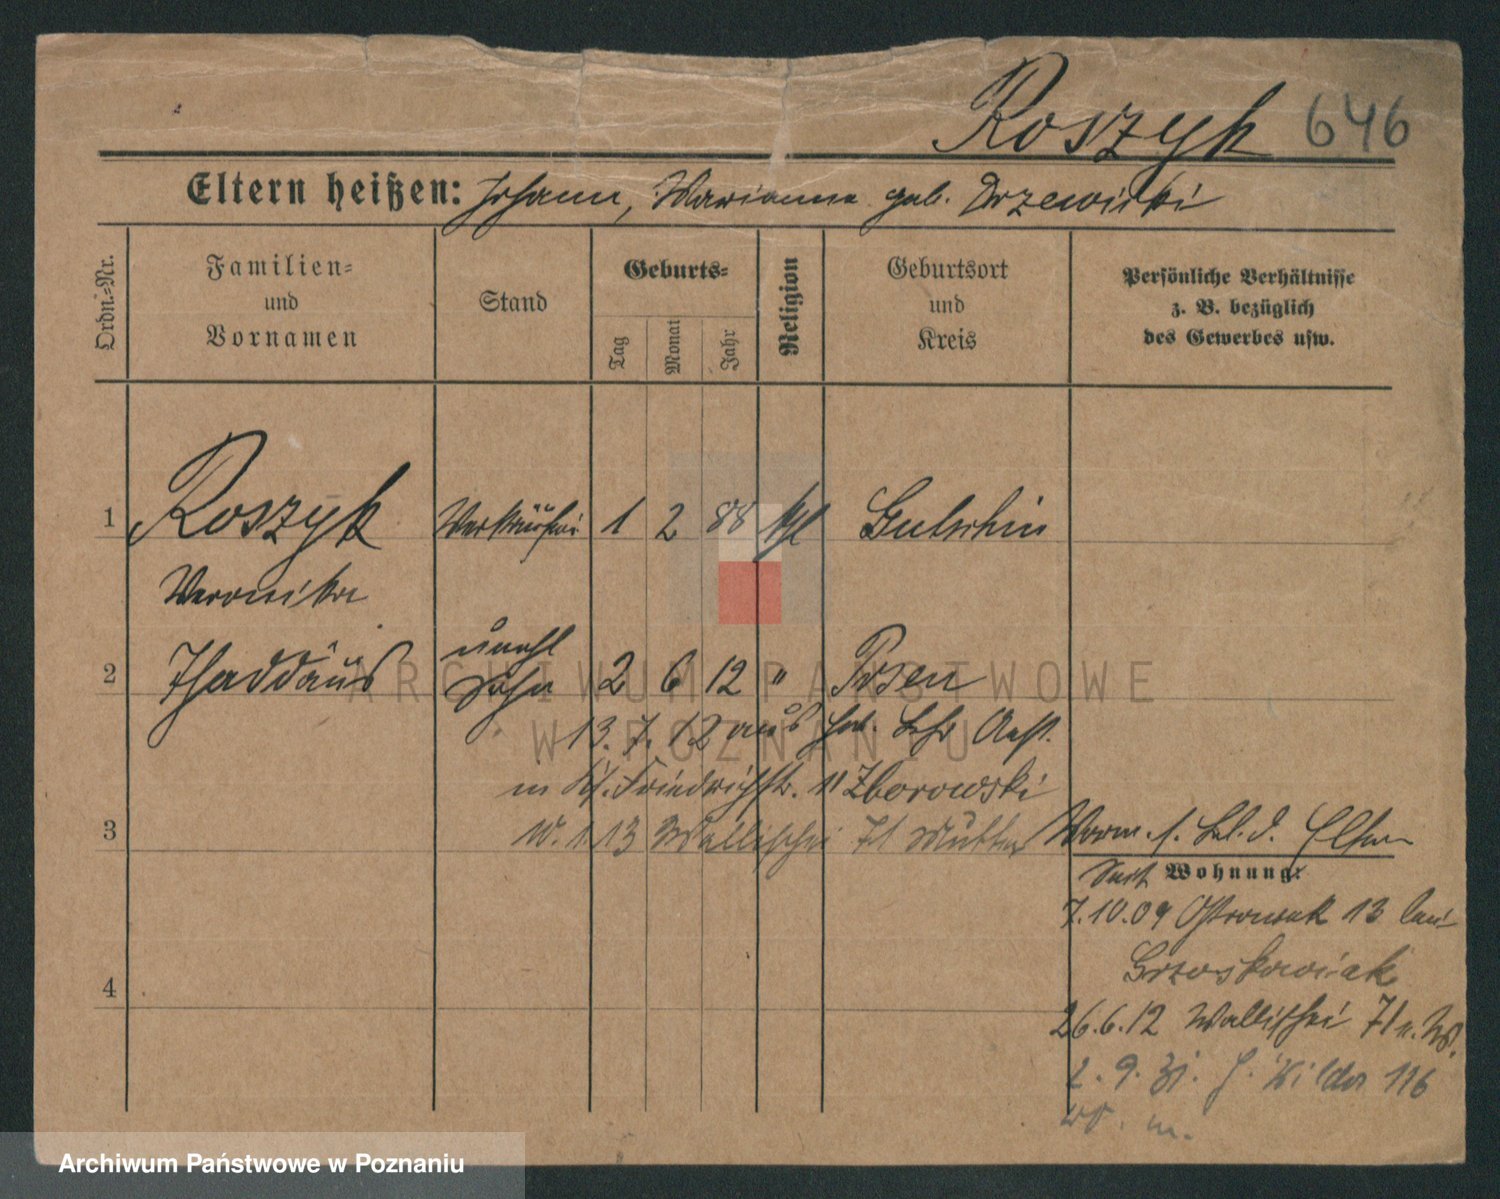 Roszyk 646
Eltern heißen: Johann, Marianna geb. Drzewicki
Ordn.-Nr.
Familien-
und
Vornamen
Stand
Geburts-
Tag
Monat
Jahr
Religion
Geburtsort
und
Kreis
Persönliche Verhältnisse
z. B. bezüglich
des Gewerbes usw.
1 Roszyk Verkäuferin 1 2 88 kth Gutschin
Veronika
2 Thaddäus unehl Sohn 2 6 12 " Posen
13. 7. 12 aus Anst.
Friedrichstr. 11 Zborowski
3 13 Wallischei 71 Mutter
Vorm. d. Eltern
Seit Wohnung:
7.10.09 Ostrowek 13 bei
Grzeskowiak
26.6.12 Wallischei 71
4
2. 9. 31. 116
ARCHIWUM PAŃSTWOWE
W POZNANIU
Archiwum Państwowe w Poznaniu